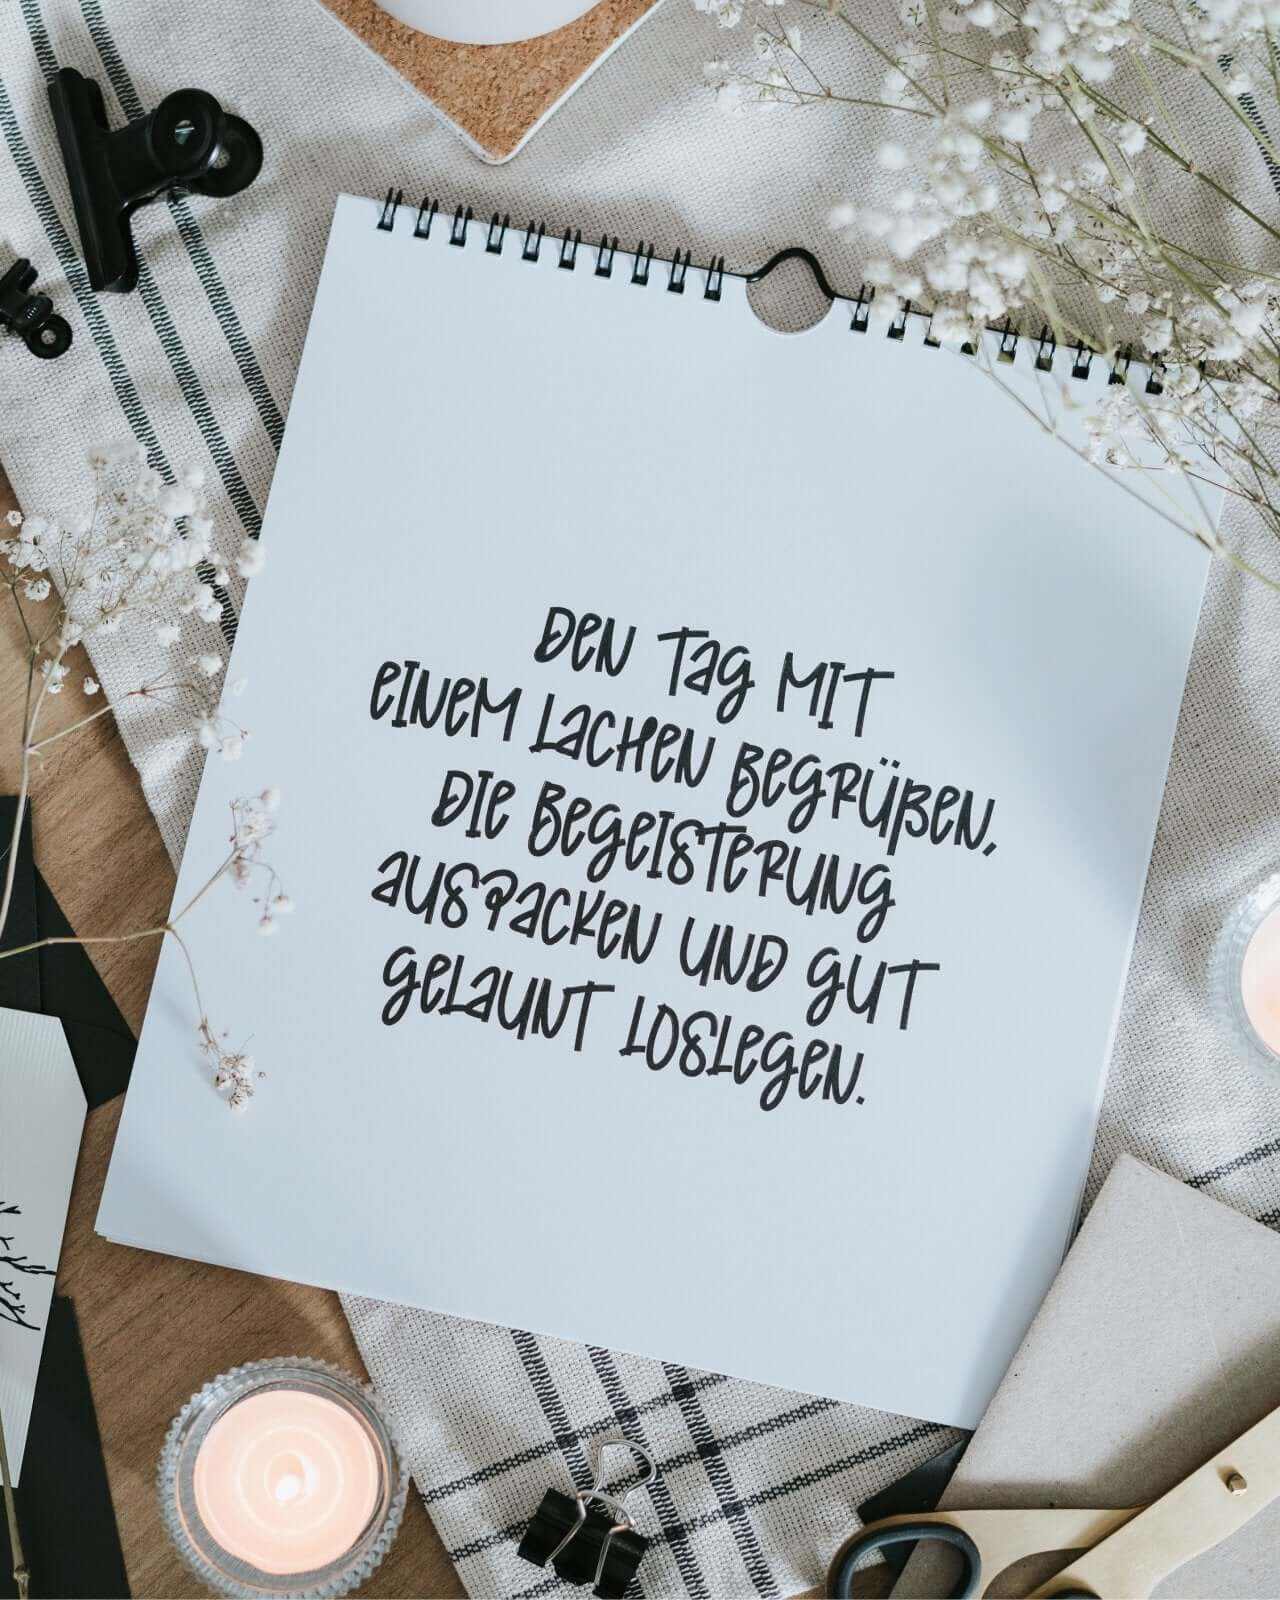 Den Tag mit
einem Lachen begrüßen,
die Begeisterung
auspacken und gut
gelaunt loslegen.